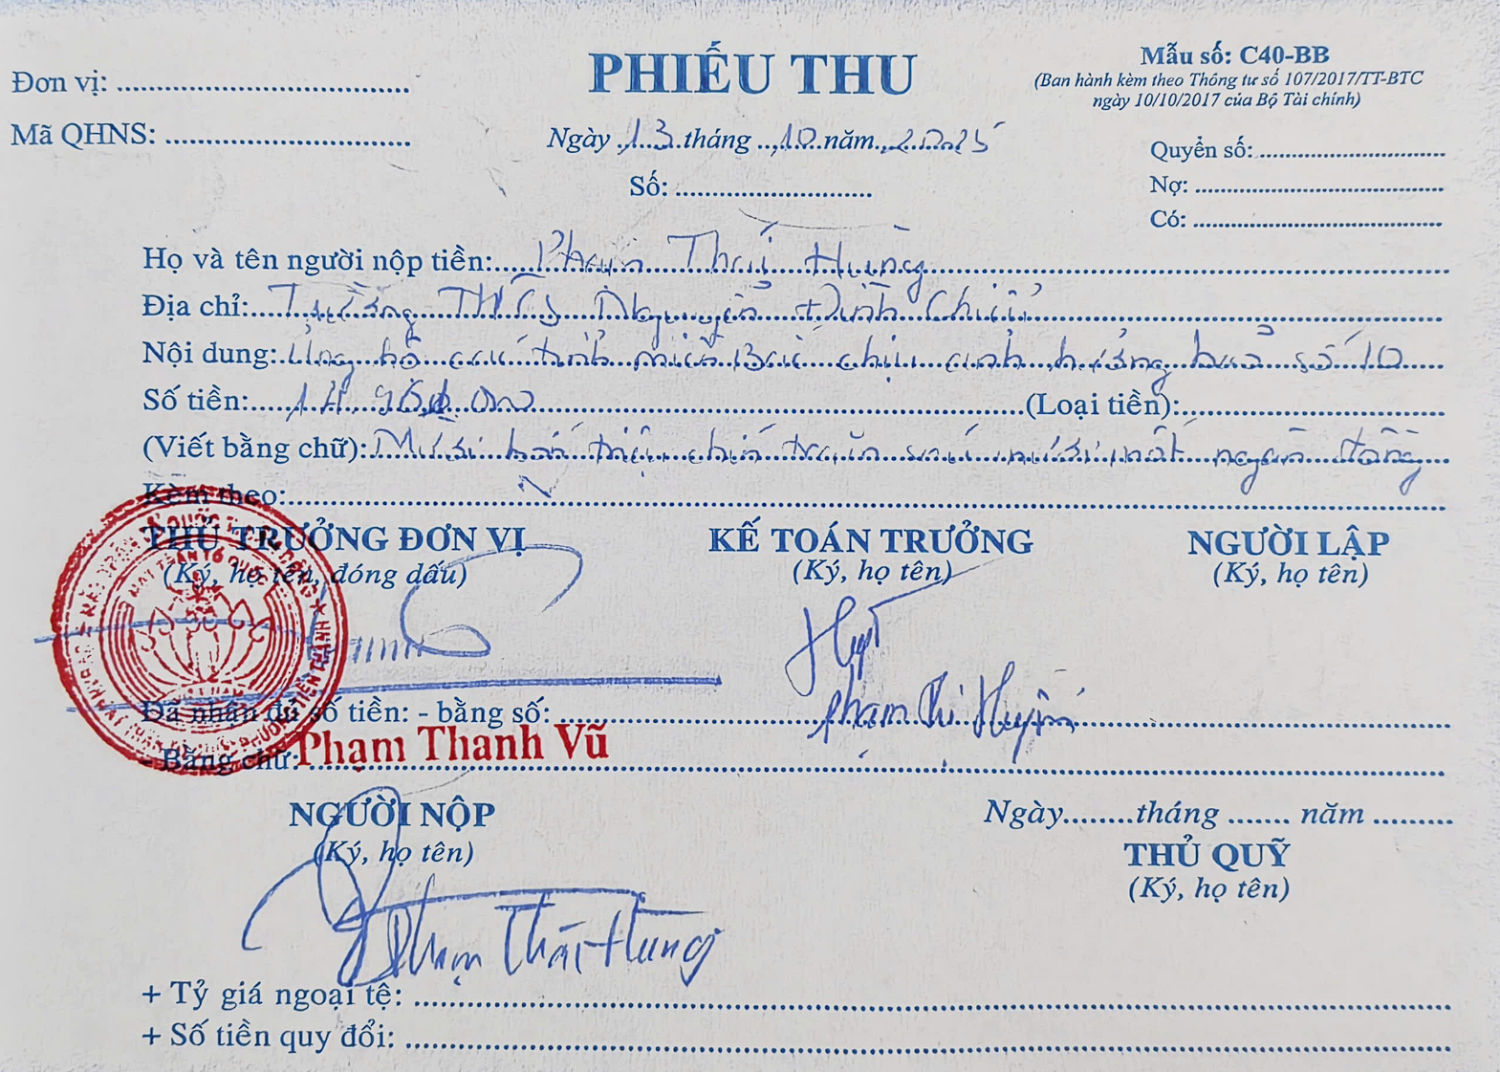 Đơn vị: ........................................
PHIẾU THU
Mẫu số: C40-BB
(Ban hành kèm theo Thông tư số 107/2017/TT-BTC
ngày 10/10/2017 của Bộ Tài chính)
Mã QHNS: ..................................
Ngày 13 tháng 10 năm 2025
Số: ...........................
Quyển số: ...........................
Nợ: ....................................
Có: ....................................
Họ và tên người nộp tiền: Phạm Thái Hùng
Địa chỉ: Trường Nguyễn Đình Chiểu
Nội dung: Ủng hộ các tỉnh miền Bắc chịu ảnh hưởng bão số 10
Số tiền: (Loại tiền): ....................................
(Viết bằng chữ): Mười bốn triệu chín trăm sáu mươi mốt ngàn đồng
Kèm theo: ....................................
THỦ TRƯỞNG ĐƠN VỊ
KẾ TOÁN TRƯỞNG
NGƯỜI LẬP
(Ký, họ tên, đóng dấu)
(Ký, họ tên)
(Ký, họ tên)
MẶT TRẬN TỔ QUỐC
VIỆT NAM
Đã nhận đủ số tiền: - bằng số: ....................................
Phạm Thị Huyền
- Bằng chữ: ....................................
Phạm Thanh Vũ
NGƯỜI NỘP
Ngày........tháng ....... năm .........
(Ký, họ tên)
THỦ QUỸ
(Ký, họ tên)
Phạm Thái Hùng
+ Tỷ giá ngoại tệ: ....................................
+ Số tiền quy đổi: ....................................